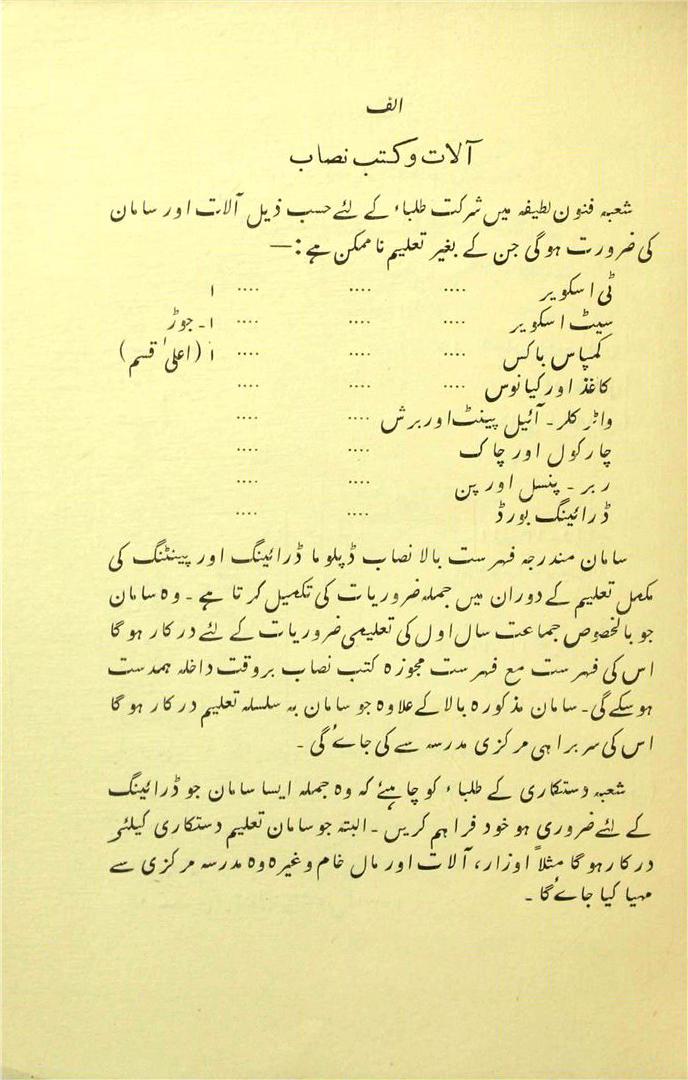 الف
آلات و کتب نصاب
شعبہ فنون لطیفہ میں شرکت طلباء کے لئے حسب ذیل آلات اور سامان
کی ضرورت ہوگی جن کے بغیر تعلیم ناممکن ہے :—
ٹی اسکویر .... .... .... ۱
سیٹ اسکویر .... .... .... ۱۔ جوڑ
کمپاس باکس .... .... .... ۱ (اعلیٰ قسم)
کاغذ اور کیانوس .... .... ....
واٹر کلر ۔ آئیل پینٹ اور برش .... ....
چارکول اور چاک .... ....
ربر ۔ پنسل اور پن .... ....
ڈرائینگ بورڈ .... ....
سامان مندرجہ فہرست بالا نصاب ڈپلوما ڈرائینگ اور پینٹنگ کی
مکمل تعلیم کے دوران میں جملہ ضروریات کی تکمیل کرتا ہے ۔ وہ سامان
جو بالخصوص جماعت سال اول کی تعلیمی ضروریات کے لئے درکار ہوگا
اس کی فہرست مع فہرست مجوزہ کتب نصاب بروقت داخلہ ہمدست
ہوسکے گی ۔ سامان مذکورہ بالا کے علاوہ جو سامان بہ سلسلہ تعلیم درکار ہوگا
اس کی سربراہی مرکزی مدرسہ سے کی جاۓ گی ۔
شعبہ دستکاری کے طلباء کو چاہیئے کہ وہ جملہ ایسا سامان جو ڈرائینگ
کے لئے ضروری ہو خود فراہم کریں ۔ البتہ جو سامان تعلیم دستکاری کیلئے
درکار ہوگا مثلاً اوزار، آلات اور مال خام وغیرہ وہ مدرسہ مرکزی سے
مہیا کیا جاۓ گا ۔